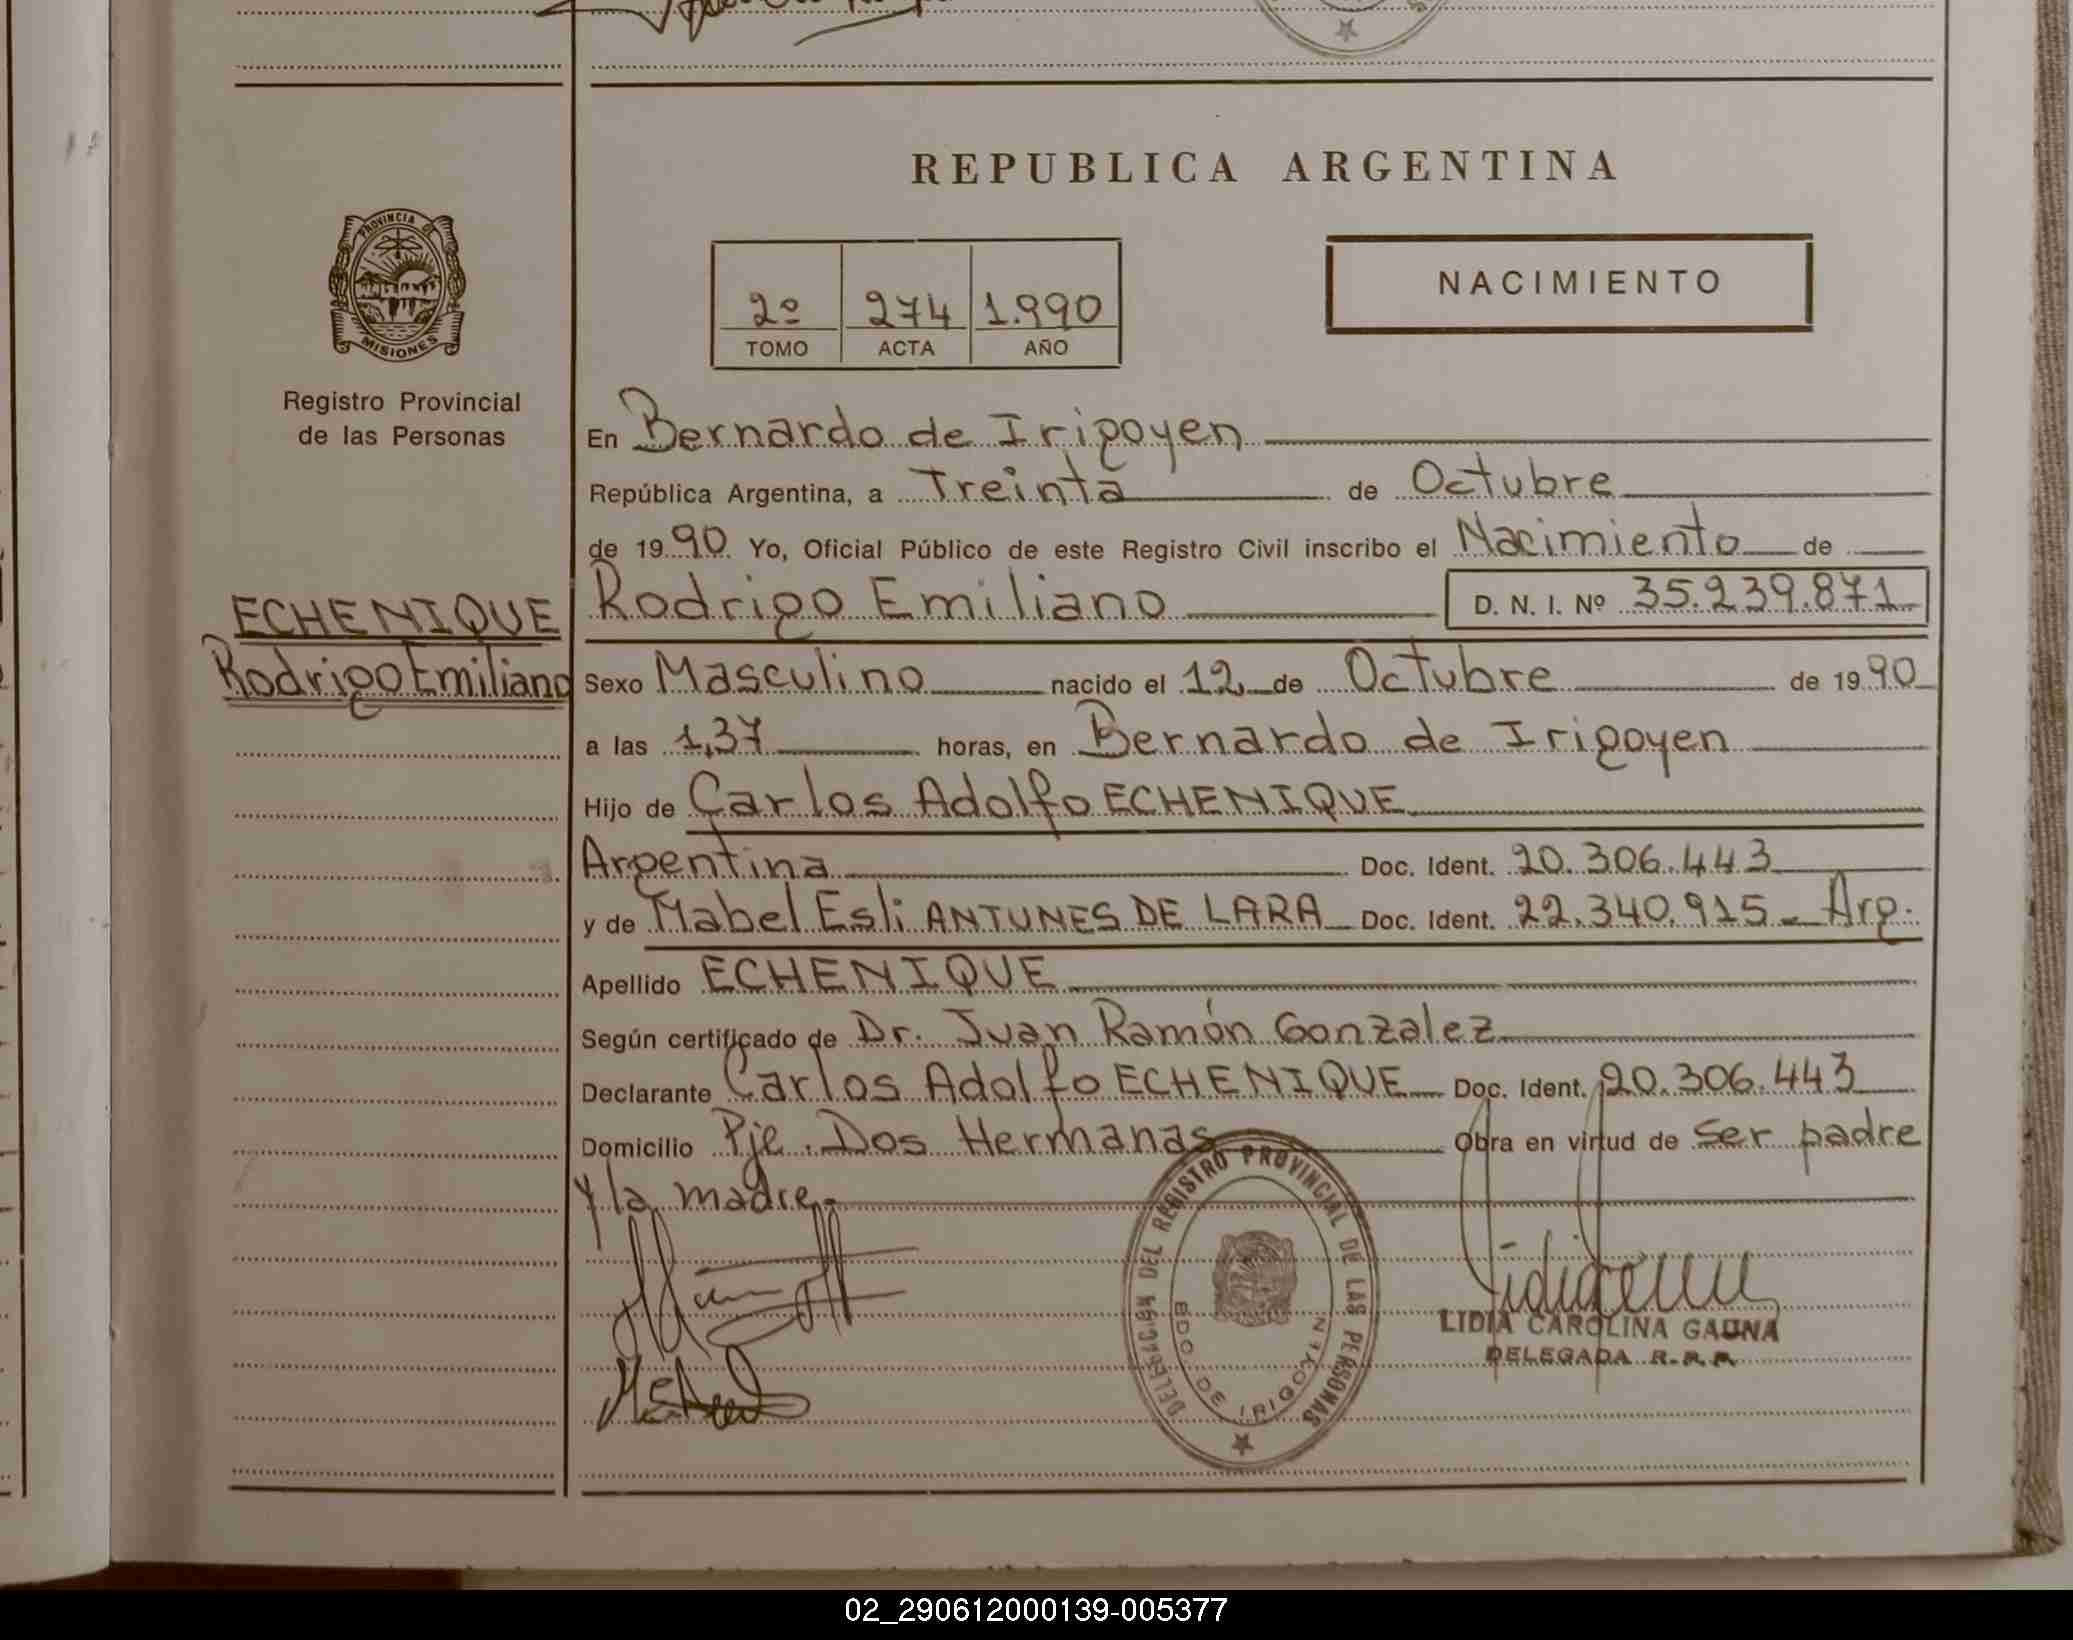 REPUBLICA ARGENTINA
PROVINCIA DE
MISIONES
Registro Provincial
de las Personas
2º 274 1.990
TOMO ACTA AÑO
NACIMIENTO
En Bernardo de Irigoyen
República Argentina, a Treinta de Octubre
de 1990 Yo, Oficial Público de este Registro Civil inscribo el Nacimiento de
ECHENIQUE
Rodrigo Emiliano
Rodrigo Emiliano D. N. I. Nº 35.239.871
Sexo Masculino nacido el 12 de Octubre de 1990
a las 1,37 horas, en Bernardo de Irigoyen
Hijo de Carlos Adolfo ECHENIQUE
Argentina Doc. Ident. 20.306.443
y de Mabel Esli ANTUNES DE LARA Doc. Ident. 22.340.915 - Arg.
Apellido ECHENIQUE
Según certificado de Dr. Juan Ramón Gonzalez
Declarante Carlos Adolfo ECHENIQUE Doc. Ident. 20.306.443
Domicilio Pje. Dos Hermanas Obra en virtud de ser padre
y la madre.-
DELEGACION DEL REGISTRO PROVINCIAL DE LAS PERSONAS
BDO DE IRIGOYEN
LIDIA CAROLINA GAUNA
DELEGADA R.P.P.
02_290612000139-005377